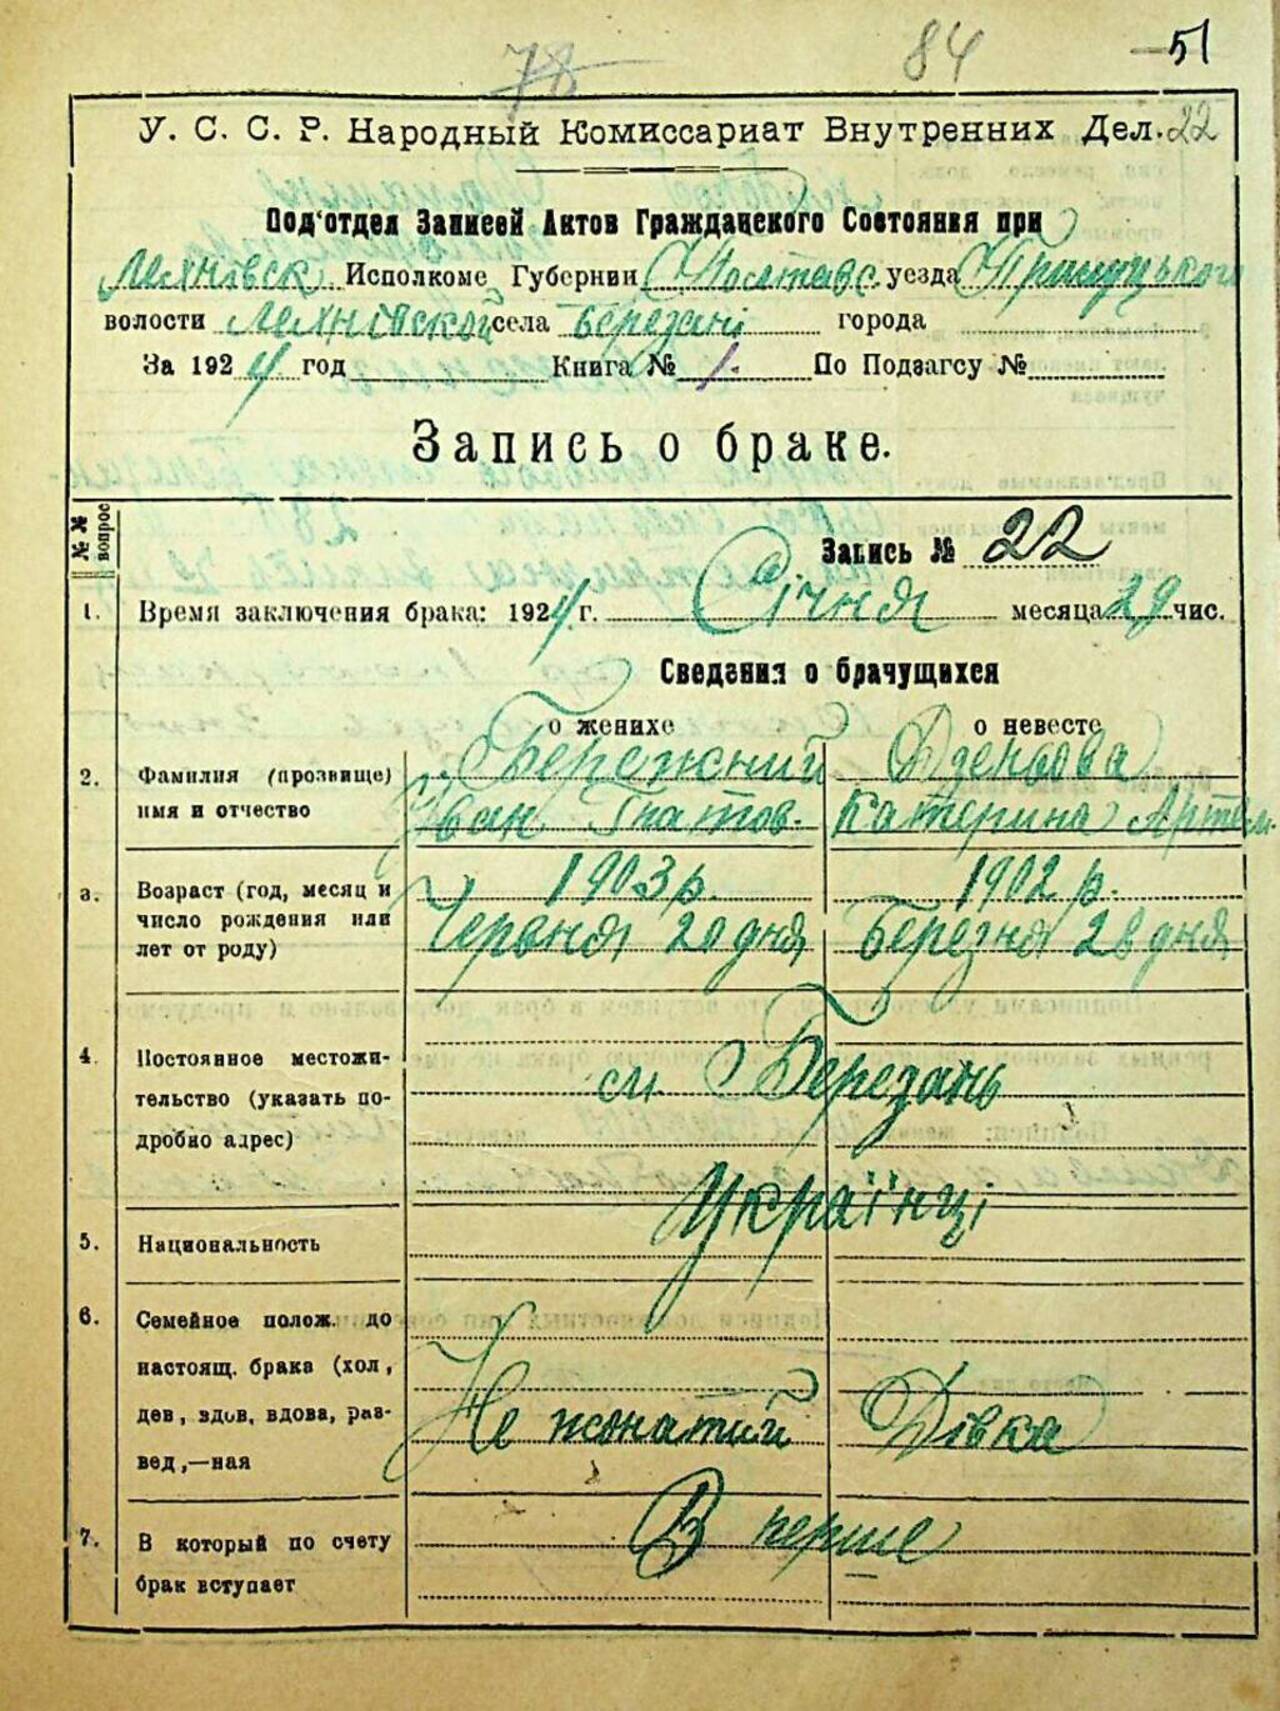 78
84
51
У. С. С. Р. Народный Комиссариат Внутренних Дел. 22
Под'отдел Записей Актов Гражданского Состояния при
Лехновск. Исполкоме Губернии Полтавс. уезда Прилуцького
волости Лехнівской села Березані города
За 1924 год Книга № 1. По Подзагсу №
Запись о браке.
№№ вопрос
Запись № 22
1. Время заключения брака: 1924 г. Січня месяца 29 чис.
Сведения о брачущихся
о женихе о невесте
2. Фамилия (прозвище) Бережний
имя и отчество Іван Гнатов. Катерина Артем.
3. Возраст (год, месяц и 1903 р. 1902 р.
число рождения или Червня 20 дня Березня 28 дня
лет от роду)
4. Постоянное местожи-
тельство (указать по- см. Березань
дробно адрес)
Українці
5. Национальность
6. Семейное полож. до
настоящ. брака (хол,
дев, вдов, вдова, раз- Не жонатий Дівка
вед,—ная
7. В который по счету В перше
брак вступает